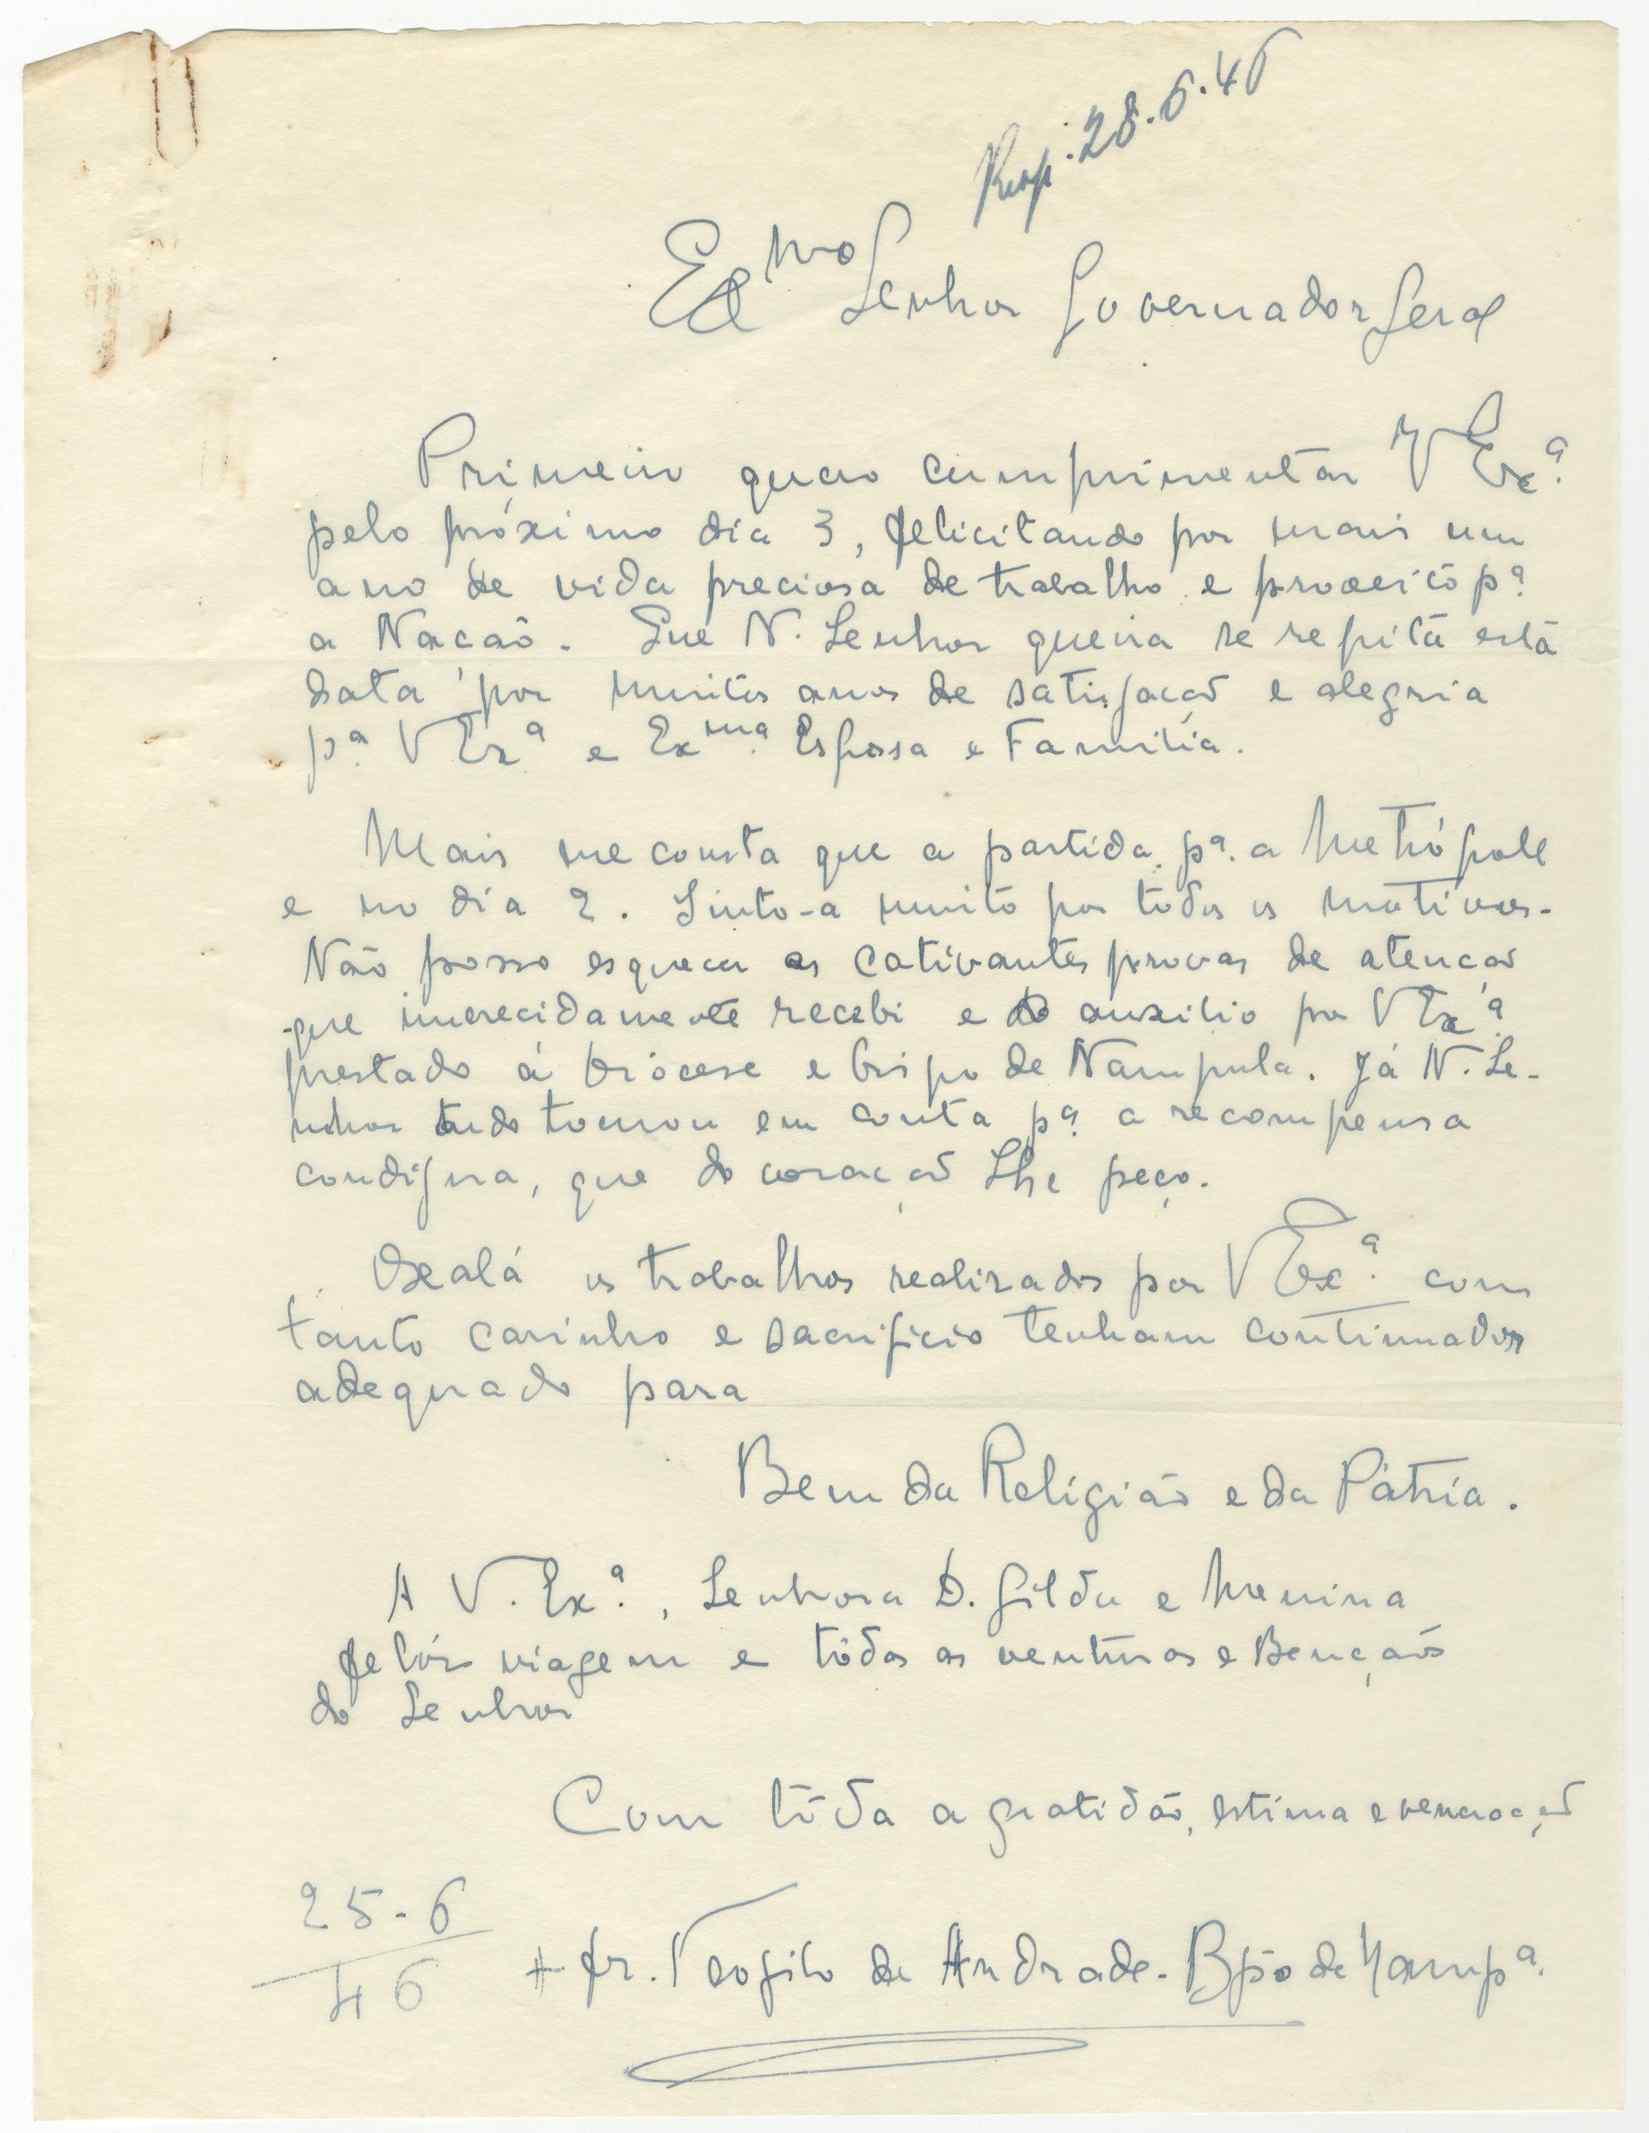 Resp. 28.6.46
Exmo Senhor Governador Geral
Primeiro quero cumprimentar V Exª.
pelo próximo dia 3, felicitando por mais um
ano de vida preciosa de trabalho e proveito pª
a Nacão. Que N. Senhor queira se repita esta
data por muitos anos de satisfacão e alegria
pª. V Exª e Exma. Esposa e Familia.
Mais me consta que a partida pª. a Metrópole
e no dia 2. Sinto-a muito por todos os motivos.
Não posso esquecer as cativantes provas de atencão
que imerecidamente recebi e o auxilio por V Exª.
prestado á Diócese e Bispo de Nampula. Já N. Se-
nhor tudo tomou em conta pª. a recompensa
condigna, que do coração Lhe peço.
Oxalá os trabalhos realizados por V Exª. com
tanto carinho e sacrificio tenham continuador
adequado para
Bem da Religião e da Pátria.
A V. Exª., Senhora D. Gilda e Menina
feliz viagem e tôdas as venturas e Bençãos
do Senhor
Com tôda a gratidão, estima e veneração
25-6
46
+ fr. Teofilo de Andrade - Bpo de Nampª.